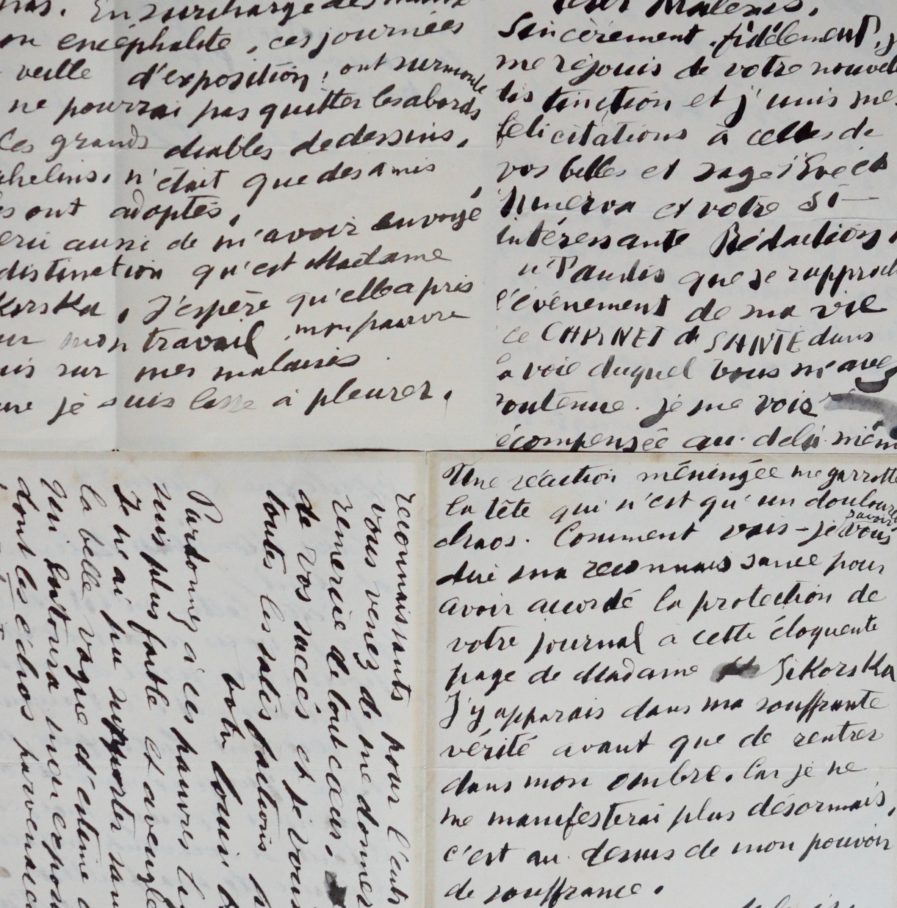 En surcharge des
encéphalite, ces journées
veille d'exposition, ont surmonté
ne pourrai pas quitter les abords
ces grands diables de dessins,
n'était que des amis
ont adoptés,
aussi de m'avoir envoyé
distinction qu'est Madame
J'espère qu'elle a pris
mon travail mon pauvre
sur mes malaises
je suis lasse à pleurer.
Sincèrement, fidèlement, j
me réjouis de votre nouvel
distinction et j'unis me
félicitations à celles de
vos belles et sages
Minerva et votre si
intéressante Rédaction
que je rapproch
l'évènement de ma vie
ce CARNET de SANTÉ dans
la voie duquel vous m'avez
soutenue. je me vois
écompensée au-delà même
reconnaissants pour l'
vous venez de me donner
remercie de tout cœur.
de vos succès et je vous
toutes les satisfactions
votre Louise
Pardonnez à ces pauvres
suis plus faible et aveugle
Je n'ai pu supporter san
la belle vague d'estime
qui entoura mon expos
dont les échos parvenaie
Une réaction méningée me garrotte
la tête qui n'est qu'un douloure
chaos. Comment vais-je savoir vous
dire ma reconnaissance pour
avoir accordé la protection de
votre journal à cette éloquente
page de Madame Sikorska
J'y apparais dans ma souffrante
vérité avant que de rentrer
dans mon ombre. Car je ne
me manifesterai plus désormais,
c'est au dessus de mon pouvoir
de souffrance.